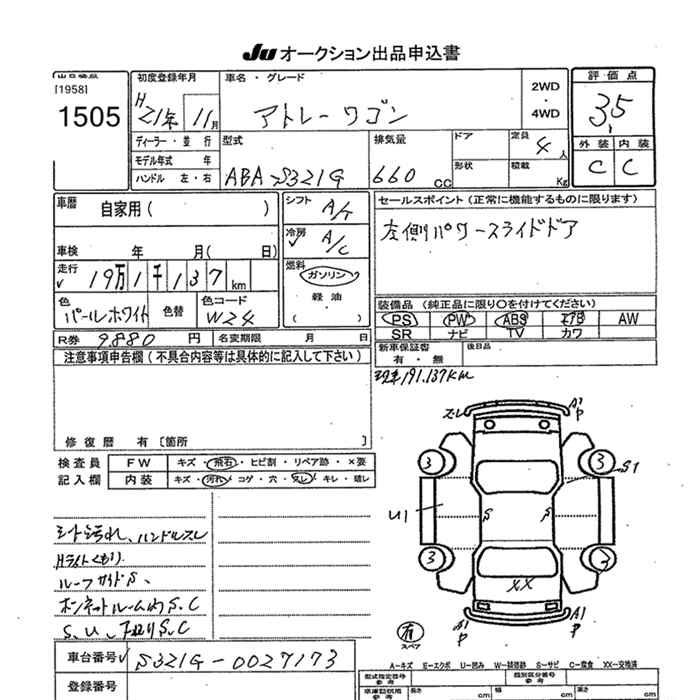 JU オークション出品申込書
出品番号
[1958]
1505
初度登録年月
H21年 11月
車名 ・ グレード
アトレーワゴン
2WD
・
4WD
評 価 点
3.5
外 装 内 装
C C
ディーラー ・ 並 行
モデル年式 年
ハンドル 左 ・ 右
型式
ABA-S321G
排気量
660 cc
ドア
定員
4人
形状
積載
Kg
車歴
自家用 ( )
車検 年 月 ( 日)
走行
19万1千137 km
色
パールホワイト
色替
色コード
W24
R券 9,880 円
名変期限 月 日
シフト
A/T
冷房
A/C
燃料
ガソリン
軽 油
( )
セールスポイント (正常に機能するものに限ります)
左側パワースライドドア
装備品 (純正品に限り〇を付けてください)
PS PW ABS エアB AW
SR ナビ TV カワ
新車保証書
有 ・ 無
後日品
191,137KM
注意事項申告欄 (不具合内容等は具体的に記入して下さい)
修 復 歴 有 [箇所 ]
検 査 員
記 入 欄
F W キズ ・ 飛石 ・ ヒビ割 ・ リペア跡 ・ ×要
内 装 キズ ・ 汚れ ・ コゲ ・ 穴 ・ スレ ・ キレ ・ 破レ
シート汚れ、ハンドルスレ
Hライトくもり
ルーフサイドS、
ボンネットルーム内S、C
S、U、下廻りS、C
スレ A1 P
3 3
S1
U1
S S
3 2
XX
A1 P
A1 P
有
スペア
A-キズ E-エクボ U-凹み W-補修跡 S-サビ C-腐食 XX-交換済
車台番号 S321G-0027173
登録番号
型式指定番号
参考
類別区分番号
参考
長さ cm
幅 cm
高さ cm